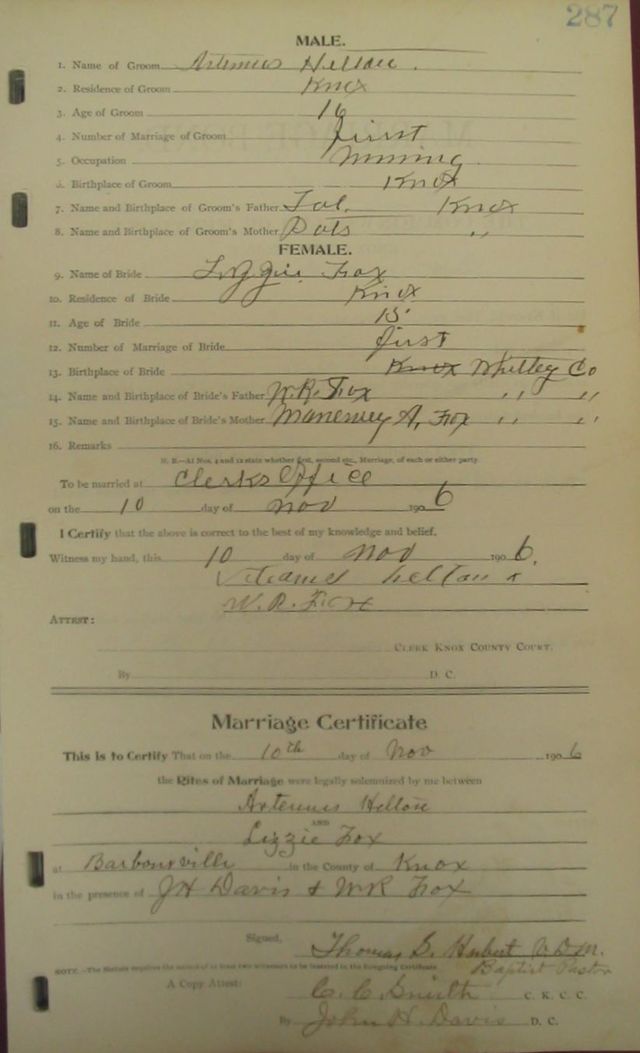 287
MALE.
1. Name of Groom Artemus Helton.
2. Residence of Groom Knox
3. Age of Groom 16
4. Number of Marriage of Groom first
5. Occupation mining
6. Birthplace of Groom Knox
7. Name and Birthplace of Groom's Father Knox
8. Name and Birthplace of Groom's Mother "
FEMALE.
9. Name of Bride Fox
10. Residence of Bride Knox
11. Age of Bride 15
12. Number of Marriage of Bride first
13. Birthplace of Bride Knox Whitley Co
14. Name and Birthplace of Bride's Father W.R. Fox " "
15. Name and Birthplace of Bride's Mother A, Fox " "
16. Remarks
N. B.—At Nos. 4 and 12 state whether first, second etc., Marriage, of each or either party.
To be married at Clerks Office
on the 10 day of Nov 1906
I Certify that the above is correct to the best of my knowledge and belief.
Witness my hand, this 10 day of Nov 1906.
Helton x
W. R. Fox
ATTEST:
CLERK KNOX COUNTY COURT.
By D. C.
Marriage Certificate
This is to Certify That on the 10th day of Nov 1906
the Rites of Marriage were legally solemnized by me between
Artemus Helton
AND
Lizzie Fox
at Barbourville in the County of Knox
in the presence of JH Davis & WR Fox
Signed, Thomas G. Hubert V.D.M.
NOTE.—The Statute requires the names of at least two witnesses to be inserted in the foregoing Certificate Baptist Pastor
A Copy Attest: C. C. Smith C. K. C. C.
By John H. Davis D. C.